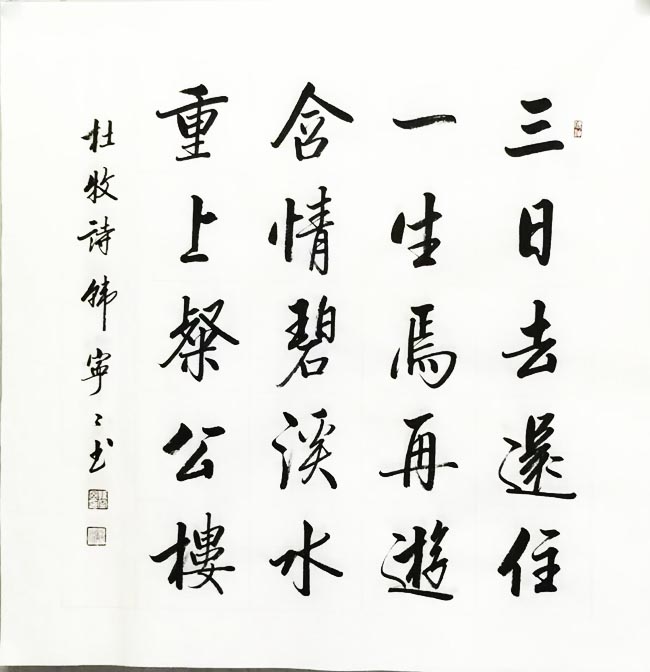 三日去還住
一生焉再遊
含情碧溪水
重上粲公樓
杜牧詩韓寧〻书